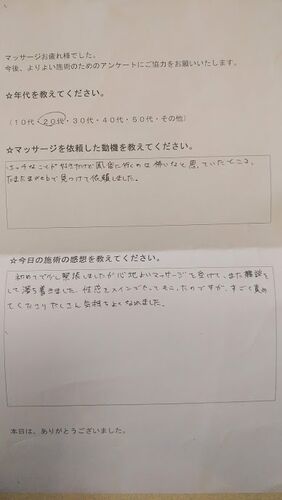 マッサージお疲れ様でした。
今後、よりよい施術のためのアンケートにご協力をお願いいたします。
☆年代を教えてください。
（10代・20代・30代・40代・50代・その他）
☆マッサージを依頼した動機を教えてください。
えっちなことが好きだけど風俗に行くのは怖いなと思っていたところ、
たまたまwebで見つけて依頼しました。
☆今日の施術の感想を教えてください。
初めてで少し緊張しましたが心地よいマッサージを受けて、また雑談を
して落ち着きました。性感をメインでやってもらったのですが、すごく責め
てくださりたくさん気持ちよくなれました。
本日は、ありがとうございました。